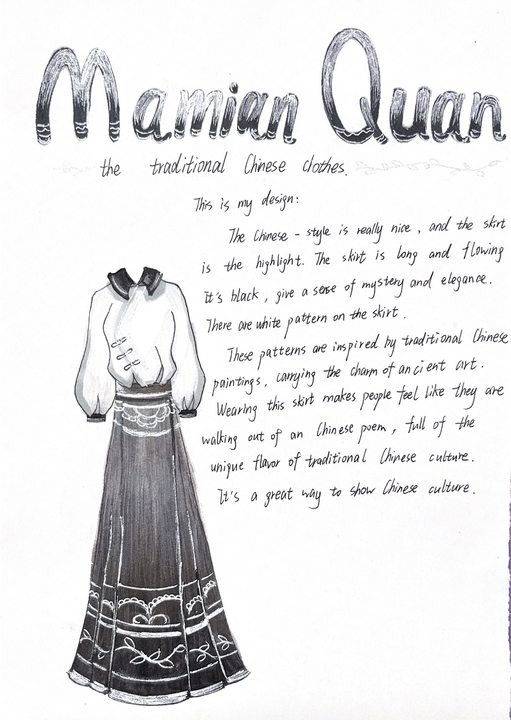 Mamian Quan
the traditional Chinese clothes.
This is my design:
The Chinese - style is really nice, and the skirt
is the highlight. The skirt is long and flowing
It's black, give a sense of mystery and elegance.
There are white pattern on the skirt.
These patterns are inspired by traditional Chinese
paintings, carrying the charm of ancient art.
Wearing this skirt makes people feel like they are
walking out of an Chinese poem, full of the
unique flavor of traditional Chinese culture.
It's a great way to show Chinese culture.